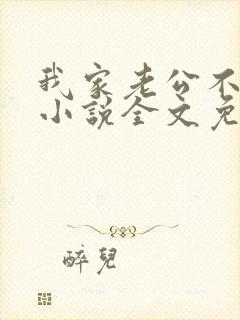 我家老公不
小説全文免
醉兒